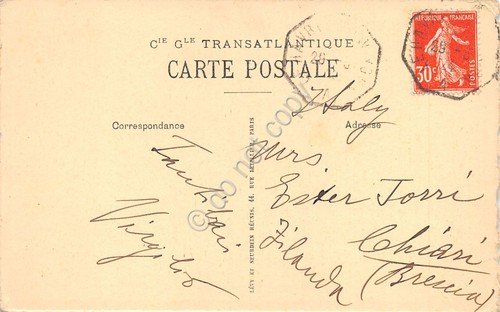 CIE GLE TRANSATLANTIQUE
CARTE POSTALE
RÉPUBLIQUE FRANÇAISE
30c
POSTES
Correspondance
Adresse
Italy
Mrs
Ester Torri
Filanda
Chiari
(Brescia)
Tanti baci
Virgilio
LÉVY ET NEURDEIN RÉUNIS, 44, RUE LETELLIER, PARIS